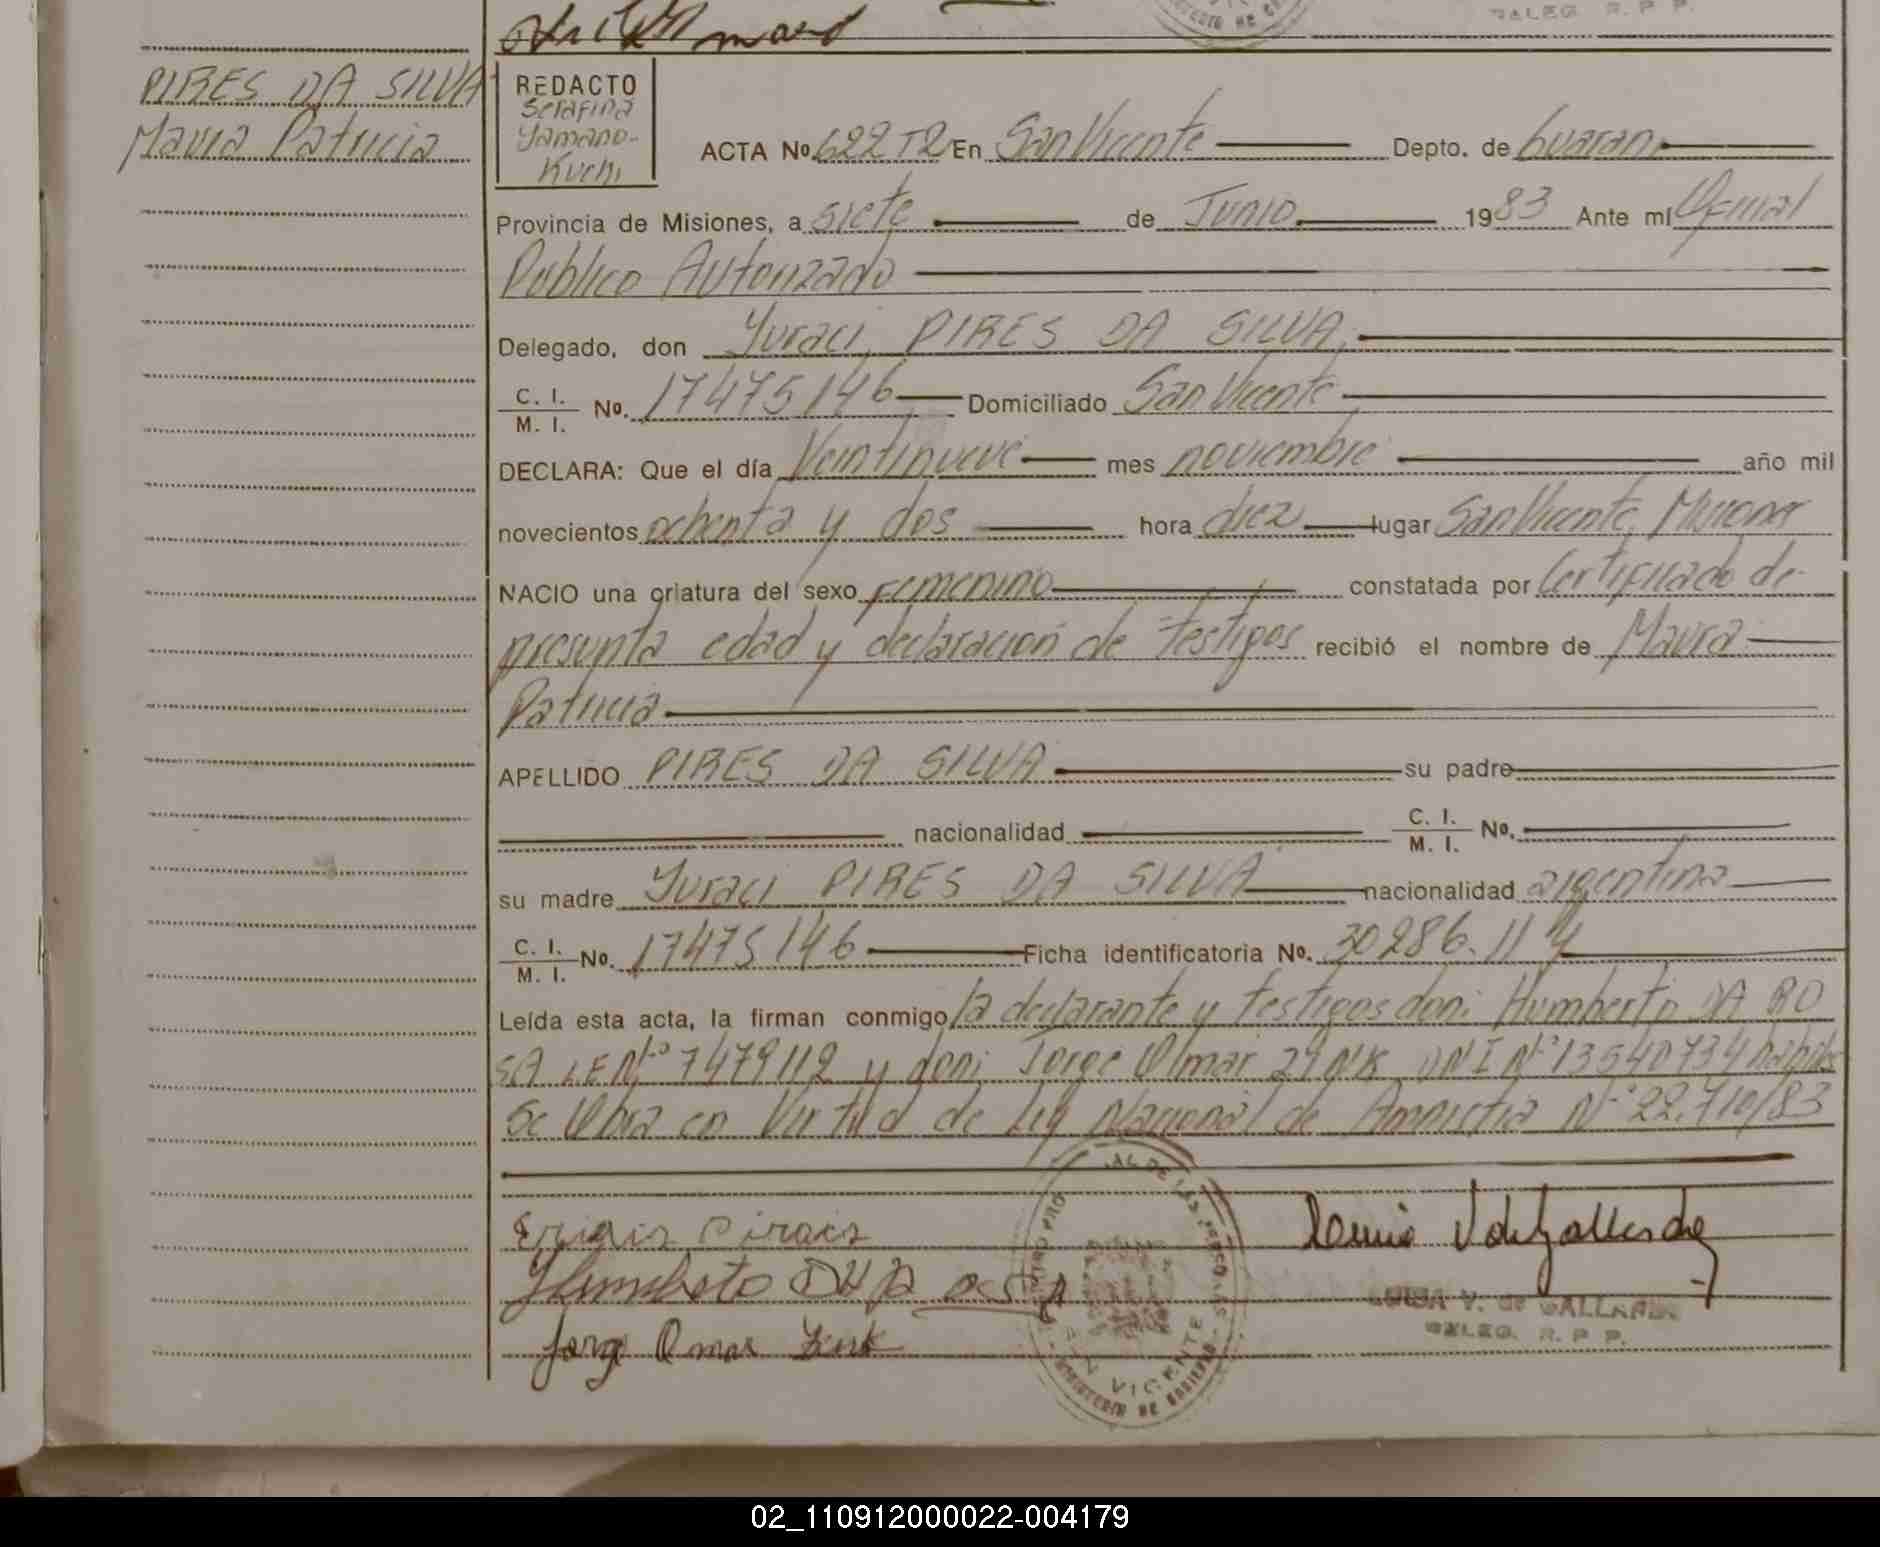 PIRES DA SILVA
Maura Patricia
REDACTO
Serafina
Yamano-
Kuchi
ACTA No 622 T2 En San Vicente Depto. de Guarani
Provincia de Misiones, a siete de Junio 1983 Ante mí Oficial
Publico Autorizado
Delegado, don Yuraci PIRES DA SILVA,
C. I.
M. I. No. 17475146 Domiciliado San Vicente,
DECLARA: Que el día Veintinueve mes noviembre año mil
novecientos ochenta y dos hora diez lugar San Vicente, Misiones
NACIO una criatura del sexo femenino constatada por Certificado de
presunta edad y declaración de testigos recibió el nombre de Maura
Patricia
APELLIDO PIRES DA SILVA su padre
nacionalidad C. I.
M. I. No.
su madre Yuraci PIRES DA SILVA nacionalidad argentina
C. I.
M. I. No. 17475146 Ficha identificatoria No. 30286.114
Leída esta acta, la firman conmigo la declarante y testigos don: Humberto DA RO
SA LE Nº 7479112 y don: Jorge Omar ZINK DNI Nº 13540734
Se labra en Virtud de Ley Nacional de Amnistia Nº 22.710/83
Humberto DA Rosa
Jorge Omar Zink
SAN VICENTE
DELEG. R. P. P.
02_110912000022-004179